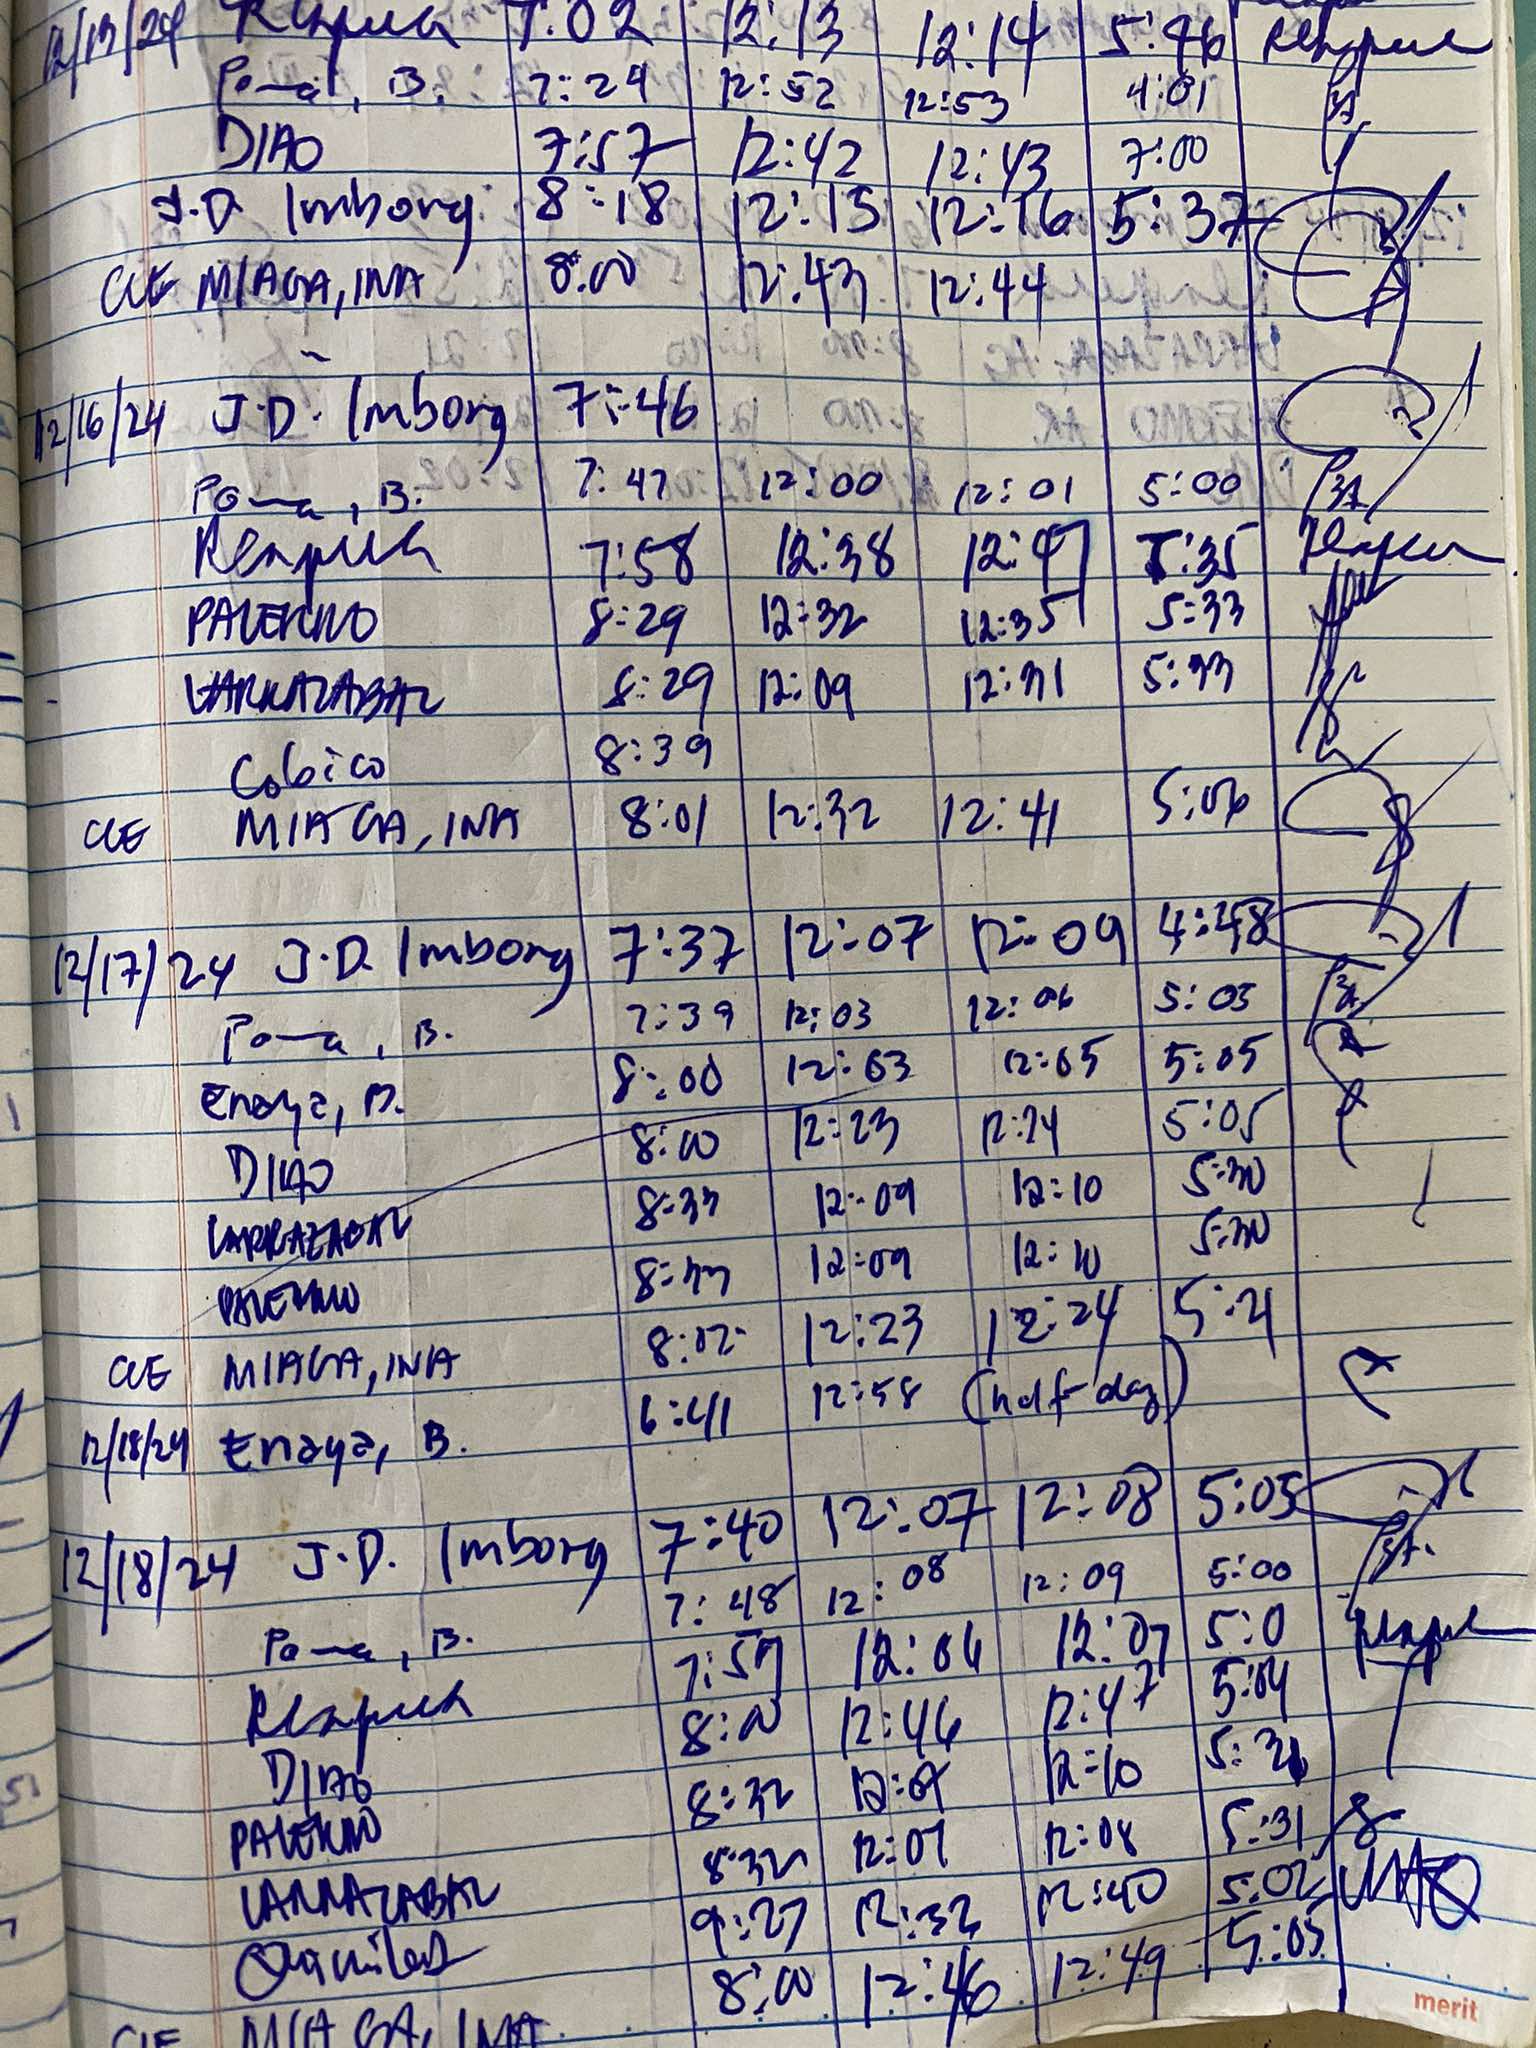 12/13/24 7:02 12:13 12:14 5:46
B. 7:24 12:52 12:53 4:01
DIAO 7:57 12:42 12:43 7:00
J.D. Imborg 8:18 12:15 12:16 5:37
CUE MIAGA, INA 8:00 12:43 12:44
12/16/24 J.D. Imborg 7:46
B. 7:47 12:00 12:01 5:00
7:58 12:38 12:47 5:35
PALERMO 8:29 12:32 12:35 5:33
LARRAZABAL 8:29 12:09 12:31 5:33
Cobico 8:39
CUE MIAGA, INA 8:01 12:32 12:41 5:06
12/17/24 J.D. Imborg 7:37 12:07 12:09 4:48
B. 7:39 12:03 12:06 5:03
Enaya, B. 8:00 12:03 12:05 5:05
DIAO 8:00 12:23 12:24 5:05
LARRAZABAL 8:33 12:09 12:10 5:30
PALERMO 8:33 12:09 12:10 5:30
CUE MIAGA, INA 8:02 12:23 12:24 5:21
12/18/24 Enaya, B. 6:41 12:58 (half-day)
12/18/24 J.D. Imborg 7:40 12:07 12:08 5:05
B. 7:48 12:08 12:09 5:00
7:57 12:06 12:07 5:0
DIAO 8:00 12:46 12:47 5:04
PALERMO 8:32 12:10
LARRAZABAL 8:32 12:07 12:08 5:31
9:27 12:32 12:40 5:02
CUE MIAGA, INA 8:00 12:46 12:49 5:05
merit